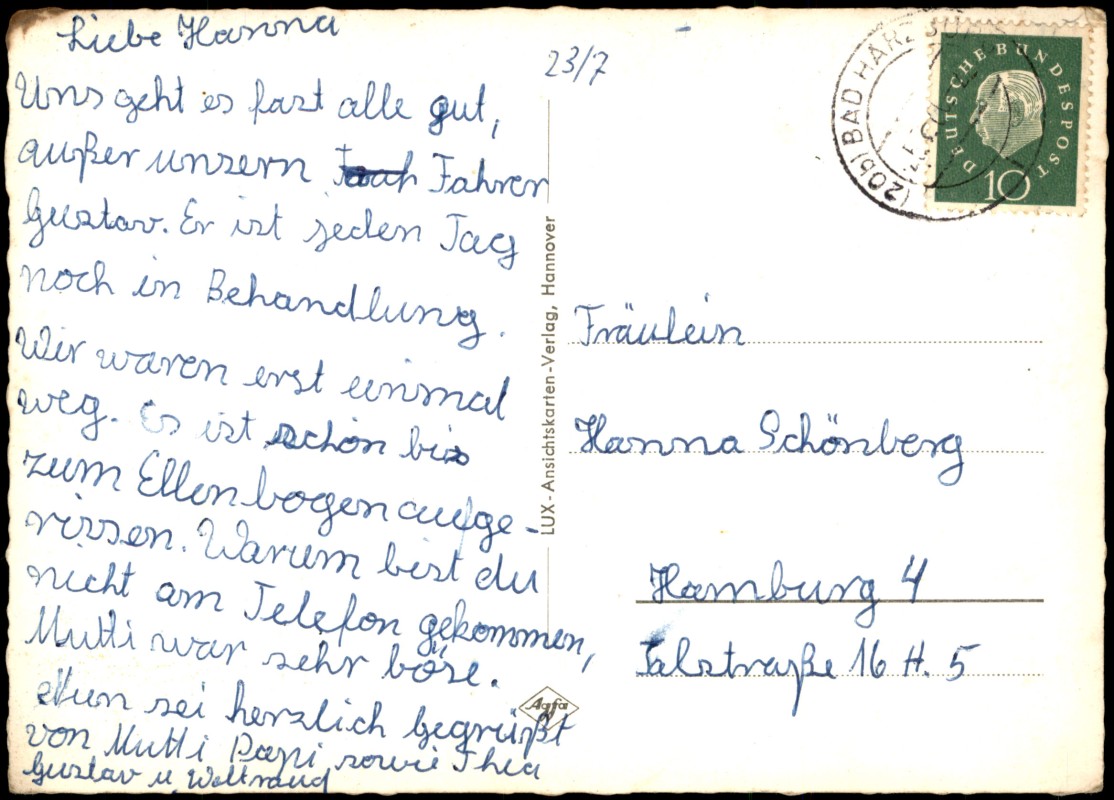 Liebe Hanna
23/7
Uns geht es fast alle gut,
außer unsern Fahrer
Gustav. Er ist jeden Tag
noch in Behandlung.
Wir waren erst einmal
weg. Es ist schon bis
zum Ellenbogen aufge-
rissen. Warum bist du
nicht am Telefon gekommen,
Mutti war sehr böse.
Nun sei herzlich begrüßt
von Mutti Papi sowie Thea
Gustav u. Waltraud
LUX-Ansichtskarten-Verlag, Hannover
Agfa
(20b) BAD HARZ
DEUTSCHE BUNDESPOST
10
Fräulein
Hanna Schönberg
Hamburg 4
Talstraße 16 H. 5